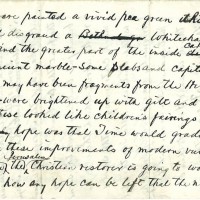 are painted a vivid pea green
disgraced a Whitechapel
and the greater part of the inside
ancient marble - Some slabs and capit
may have been fragments from the He
were brightened up with gilt and
looked like children's fairings
hope was that Time would gradu
these improvements of modern van
Jerusalem
the Christian restorer is going to wo
how any hope can be left that the n